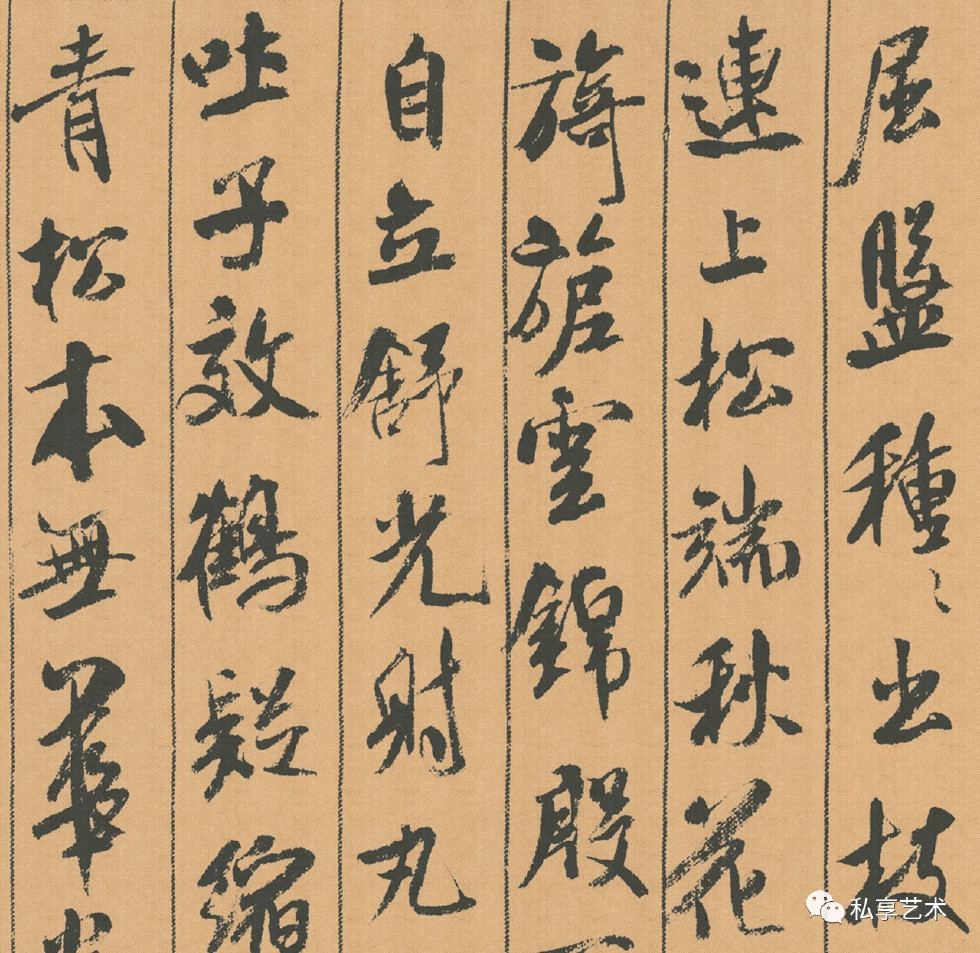 屈盤種〻出枝
連上松端秋花
旖旎雲錦殷
自立舒光射丸
吐子效鶴疑縮
青松本無華
私享艺术